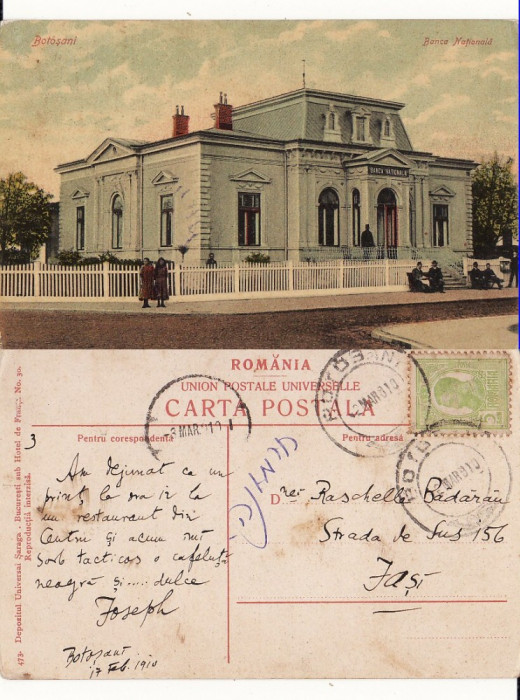 Botoșani
Banca Națională
BANCA NATIONALA
ROMÂNIA
UNION POSTALE UNIVERSELLE
CARTA POSTALA
Pentru corespondență
Pentru adresă
473- Depozitul Universal Șaraga. București sub Hotel de France No. 30.
Reproducția interzisă.
3
Am dejunat ca un
prinț la ora 12 la
un restaurant din
Centru și acum îmi
sorb tacticos o cafeluță
neagră și.... dulce
Joseph
Botoșani
17 Feb. 1910
D nei Raschelle Bădărău
Strada de Sus 156
Jași
3 MAR 910
MAR 910
MAR 910
5